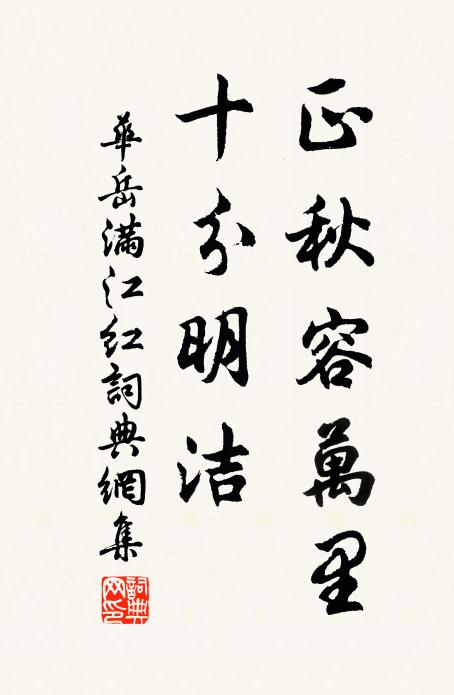 正秋容萬里
十分明洁
華岳滿江红詞典網集
詞典网印